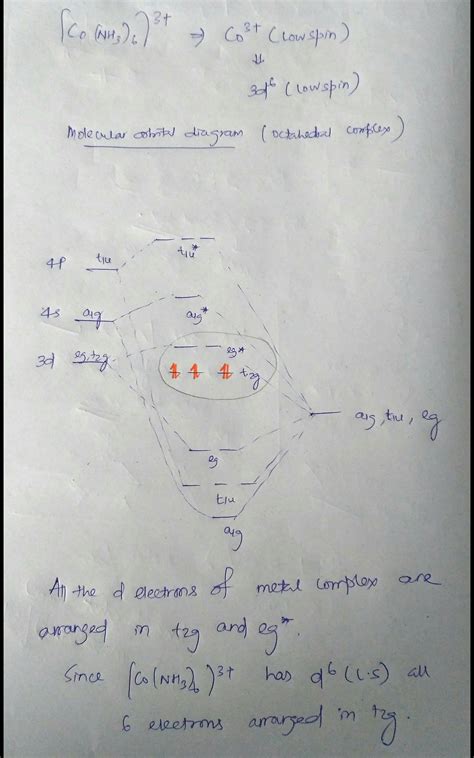 [Co(NH3)6]3+ ⇒ Co3+ (low spin)
⇓
3d6 (low spin)
Molecular orbital diagram (octahedral complex)
t1u*
4p t1u
4s a1g a1g*
3d eg,t2g eg*
t2g
a1g, t1u, eg
eg
t1u
a1g
All the d electrons of metal complex are
arranged in t2g and eg*.
Since [Co(NH3)6]3+ has d6 (L.S) all
6 electrons arranged in t2g.